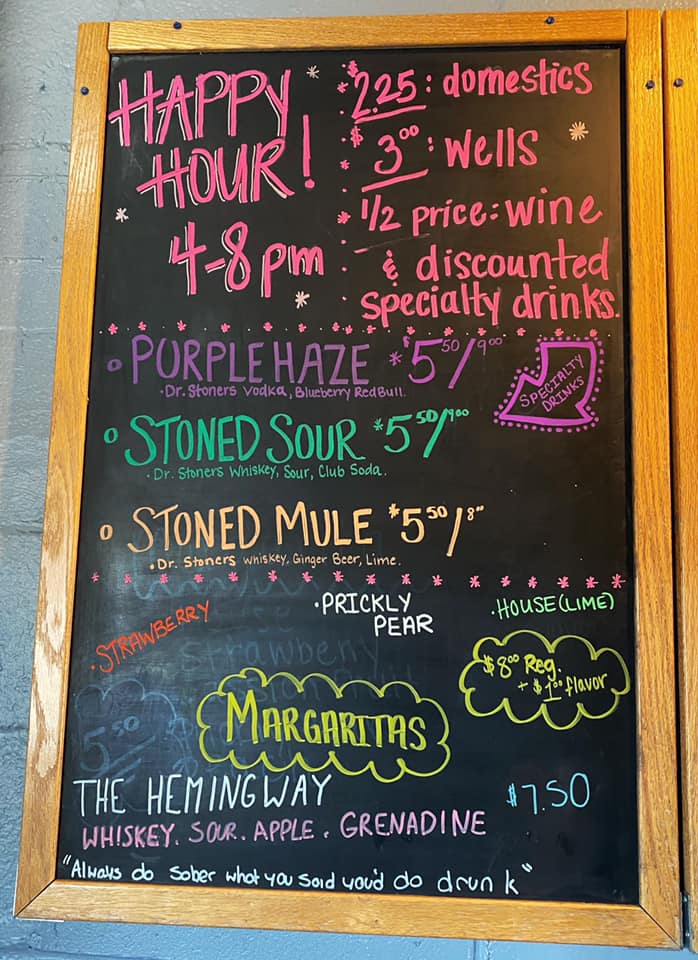 HAPPY
HOUR!
4-8pm
$2.25: domestics
$3.00: wells
1/2 price: wine
& discounted
specialty drinks.
PURPLE HAZE $5.50/9.00
·Dr. Stoners Vodka, Blueberry RedBull.
SPECIALTY
DRINKS
STONED SOUR $5.50/9.00
·Dr. Stoners Whiskey, Sour, Club Soda.
STONED MULE $5.50/8.00
·Dr. Stoners Whiskey, Ginger Beer, Lime.
·STRAWBERRY
·PRICKLY
PEAR
·HOUSE(LIME)
Strawberry
$8.00 Reg.
+ $1.00 flavor
5.50
MARGARITAS
THE HEMINGWAY $7.50
WHISKEY. SOUR. APPLE. GRENADINE
"Always do sober what you said you'd do drunk"